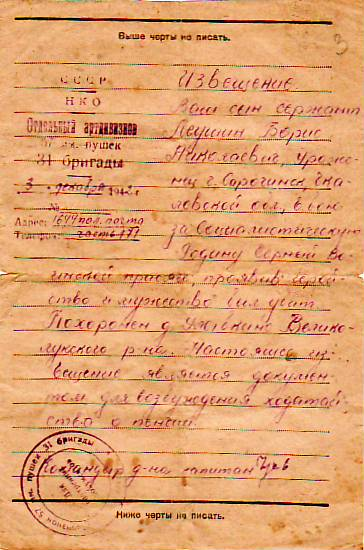 Выше черты не писать.
СССР
НКО
Отдельный артдивизион
пушек
31 бригады
3 декабря 1942 г.
№
Адрес: 1644 пол. почта
Телефон: часть 171
Извещение
Ваш сын сержант
Леушин Борис
Николаевич, уроже-
нец г. Сорочинск, Чка-
ловской обл., в бою
за Социалистическую
Родину верный во-
инской присяге, проявив герой-
ство и мужество был убит.
Похоронен д. Велико-
лукского р-на. Настоящее из-
вещение является докумен-
том для возбуждения ходатай-
ства о пенсии.
Командир д-на капитан
пушек 31 бригады
Ниже черты не писать.